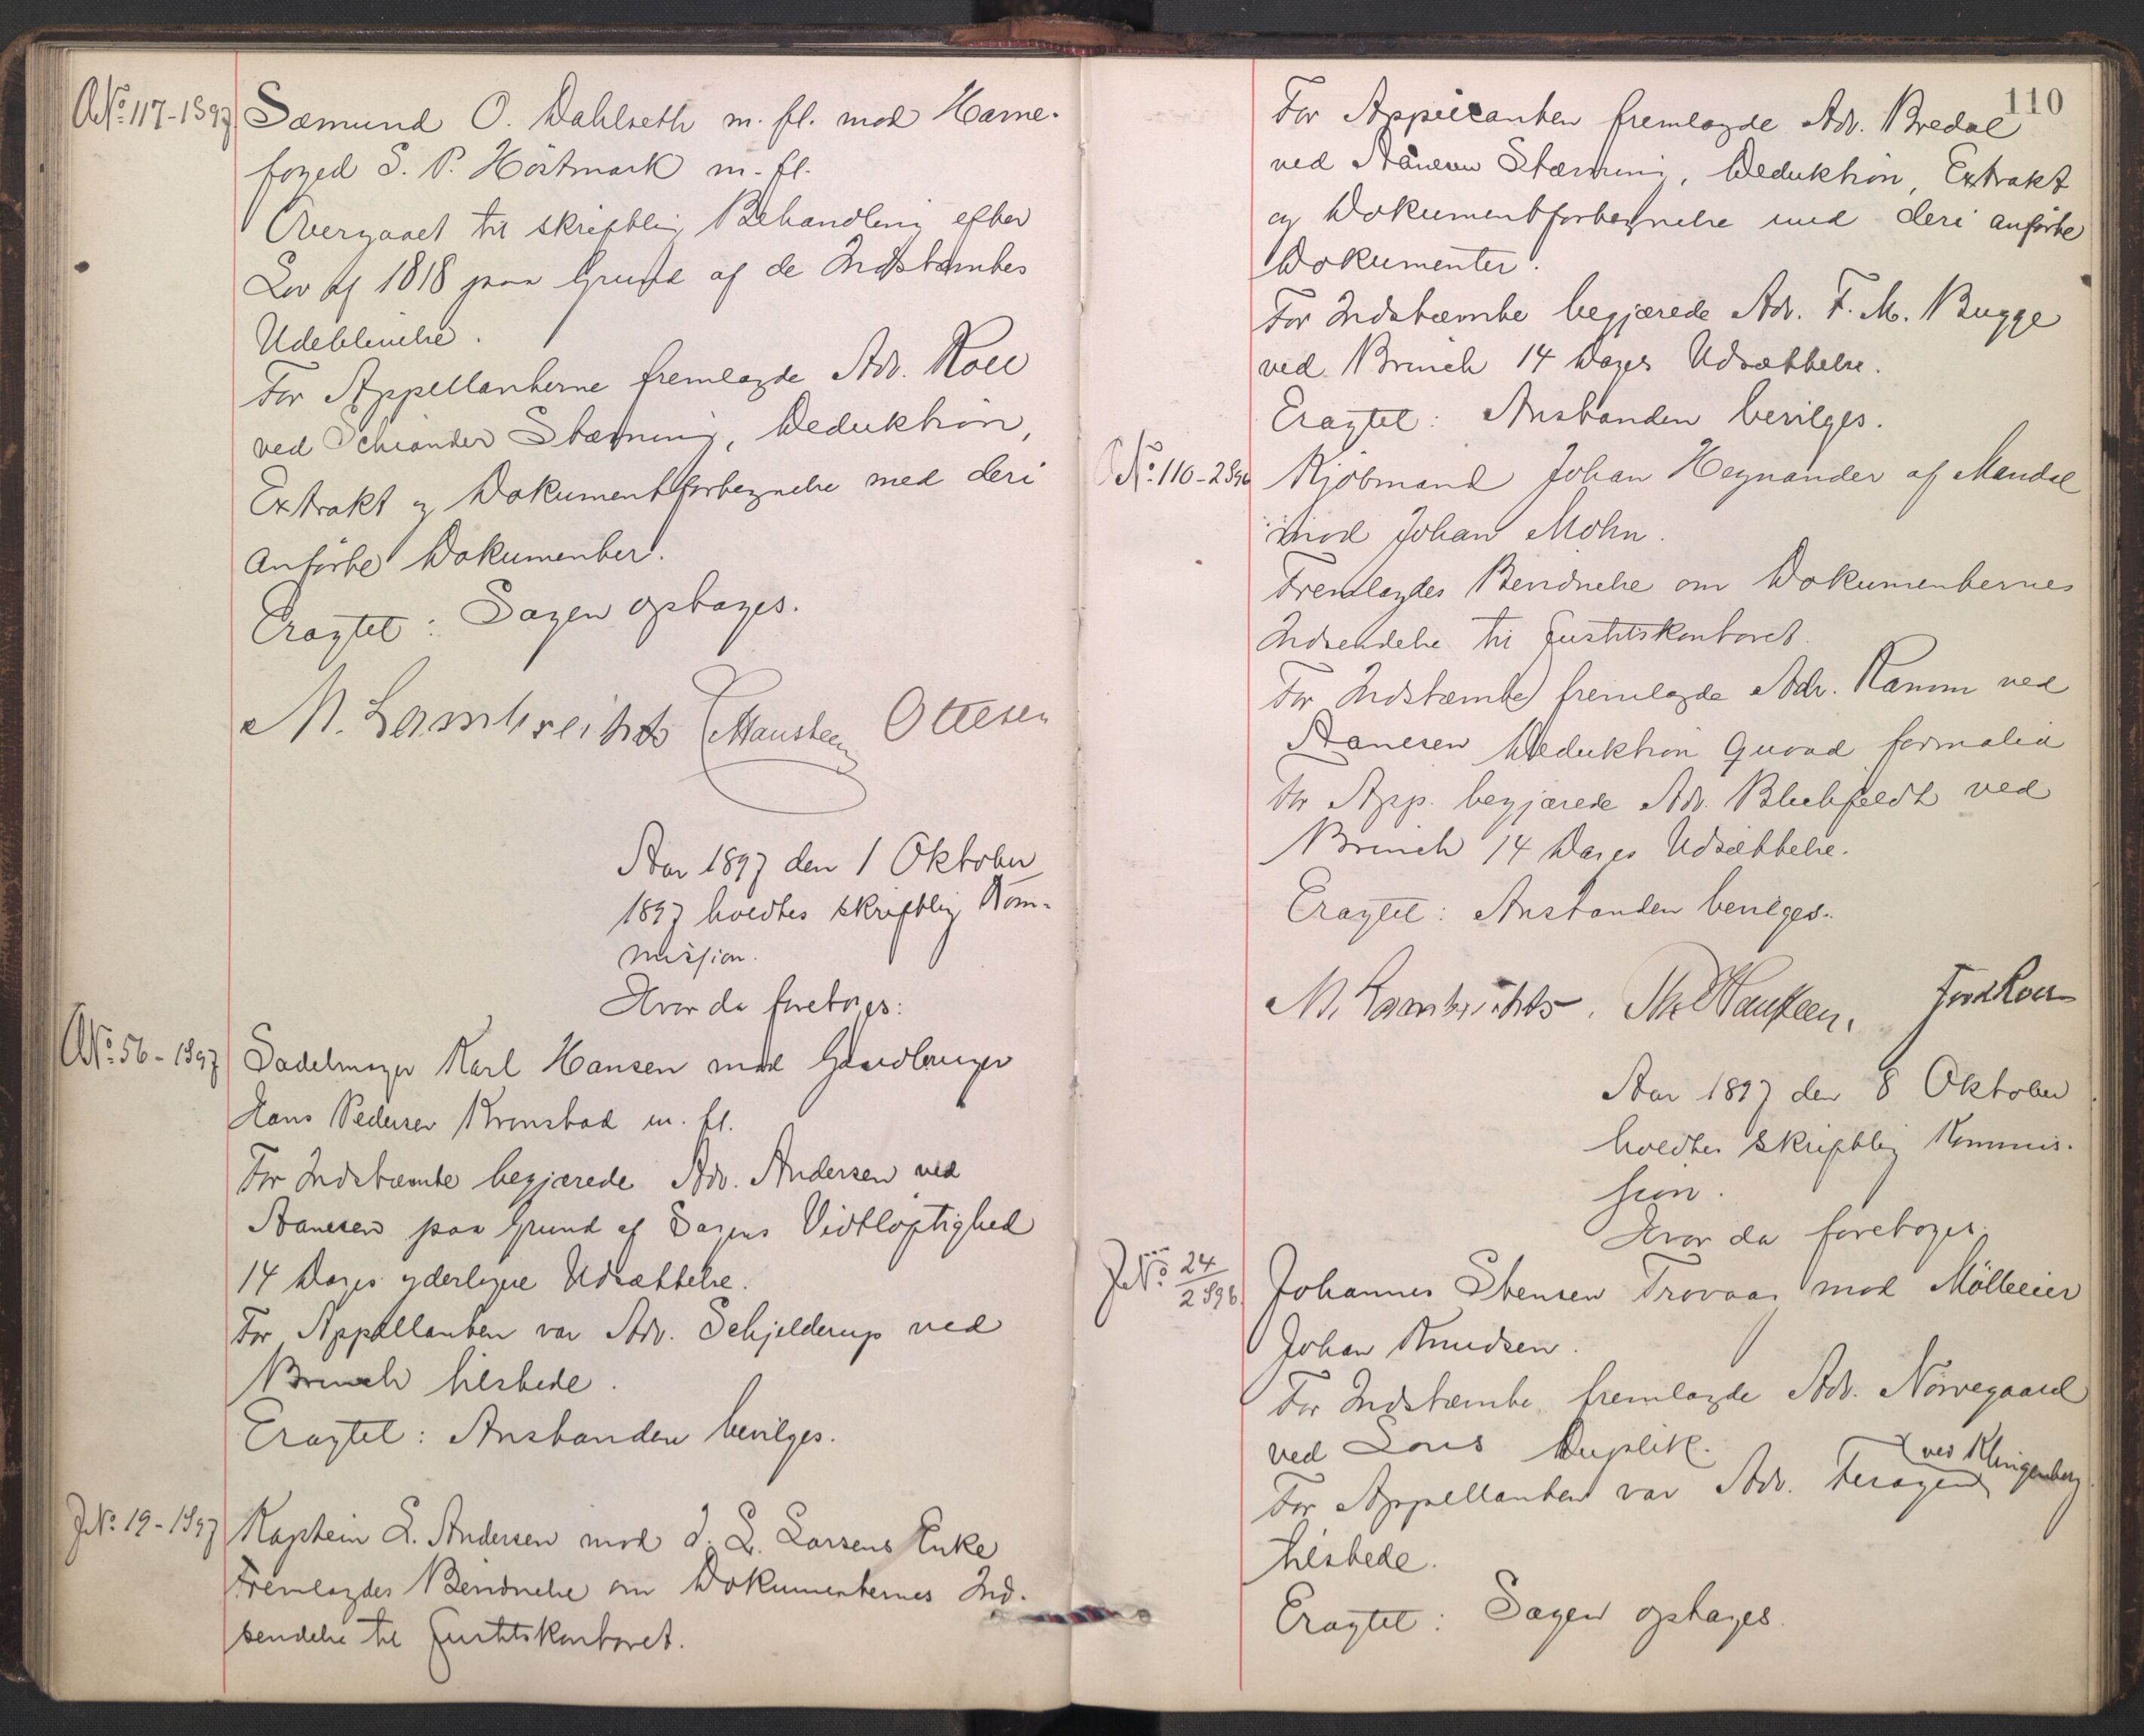 No. 117-1897 Sæmund O. Dahlseth m. fl. mod Havne-
foged S. P. Höstmark m. fl.
Overgaaet til skriftlig Behandling efter
Lov af 1818 paa Grund af de Indstævntes
Udeblivelse.
For Appellanterne fremlagde Adv. Roll
ved Schiander Stævning, Deduktion,
Extrakt og Dokumentfortegnelse med deri
anförte Dokumenter.
Eragtet: Sagen optages.
M. Lambrechts Hansteen Ottesen
Aar 1897 den 1 Oktober
1897 holdtes skriftlig Kom-
mission.
Hvor da foretoges:
No. 56-1897 Sadelmager Karl Hansen mod Gaardbruger
Hans Pedersen Kronstad m. fl.
For Indstævnte begjærede Adv. Andersen ved
Aanesen paa Grund af Sagens Vidtløftighed
14 Dages yderligere Udsættelse.
For Appellanten var Adv. Schjelderup ved
Brinch tilstede.
Eragtet: Anstanden bevilges.
J.No. 19-1897 Kaptein L. Andersen mod J. L. Larsens Enke
Fremlagdes Bevidnelse om Dokumenternes Ind-
sendelse til Justitskontoret.
110
For Appellanten fremlagde Adv. Bredal
ved Aanesen Stævning, Deduktion, Extrakt
og Dokumentfortegnelse med deri anförte
Dokumenter.
For Indstævnte begjærede Adv. F. M. Bugge
ved Brinch 14 Dages Udsættelse.
Eragtet: Anstanden bevilges.
No. 110-2/1896 Kjöbmand Johan Heynander af Mandal
mod Johan Mohn.
Fremlagdes Bevidnelse om Dokumenternes
Indsendelse til Justitskontoret.
For Indstævnte fremlagde Adv. Kamm ved
Aanesen Deduktion quoad formalia
For App. begjærede Adv. Blehfeldt ved
Brinch 14 Dages Udsættelse.
Eragtet: Anstanden bevilges.
M. Lambrechts. Hansteen.
Aar 1897 den 8 Oktober
holdtes skriftlig Kommis-
sion.
Hvor da foretoges:
J.No. 24/2 1896 Johannes Stensen Trovaag mod Mölleeier
Johan Knudsen.
For Indstævnte fremlagde Adv. Nörregaard
ved Lous Duplik.
ved Klingenberg
For Appellanten var Adv. Feragen
tilstede.
Eragtet: Sagen optages.